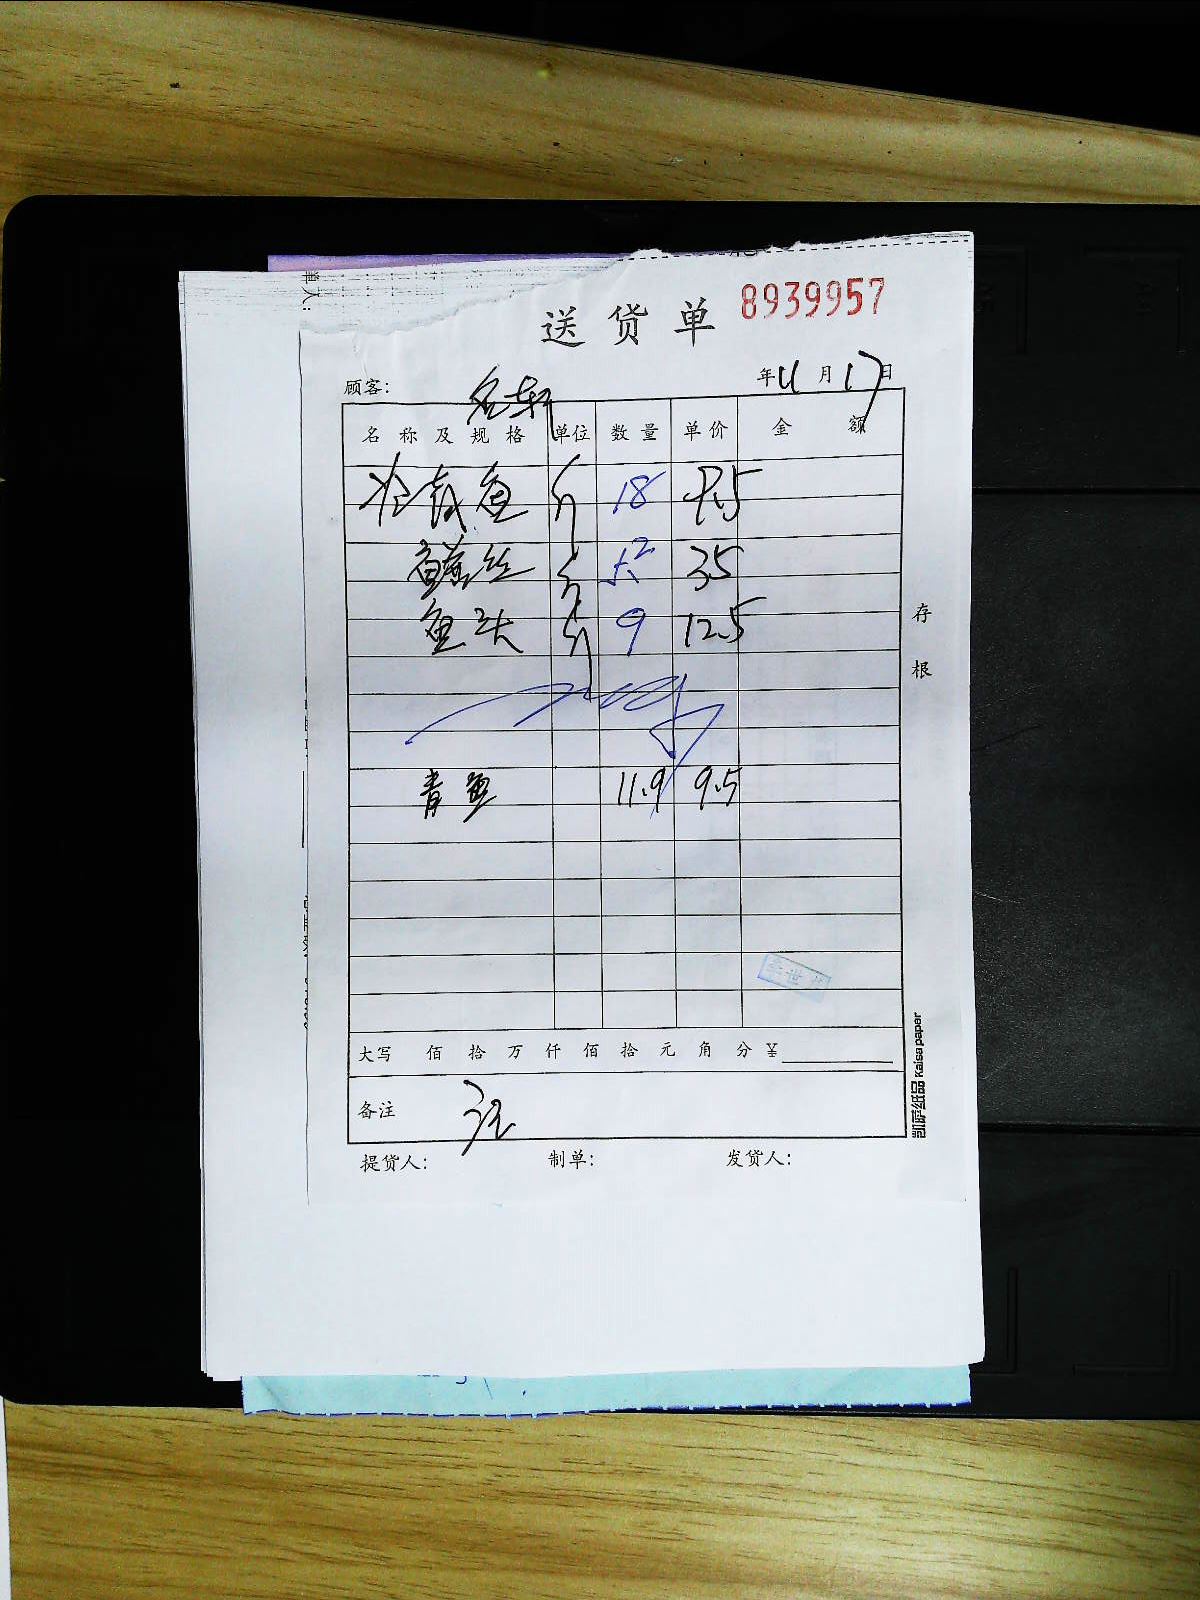 单人:
送货单 8939957
顾客: 名轩
年 11 月 17 日
名称及规格 单位 数量 单价 金额
鱼 斤 18 9.5
鳝丝 斤 35
鱼头 斤 9 12.5
青鱼 11.9 9.5
存根
大写 佰 拾 万 仟 佰 拾 元 角 分 ¥
备注
提货人: 制单: 发货人:
凯萨纸品 Kaisa paper